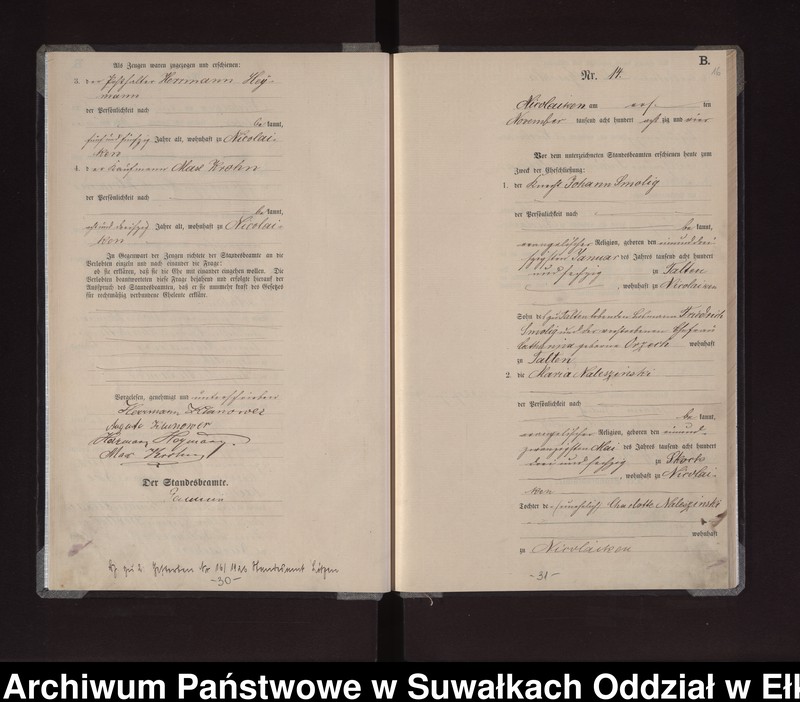 Als Zeugen waren zugezogen und erschienen:
3. der Posthalter Herrmann Hey-
mann
der Persönlichkeit nach
be kannt,
fünfundfünfzig Jahre alt, wohnhaft zu Nicolai-
ken
4. der Kaufmann Max Krohn
der Persönlichkeit nach
be kannt,
Jahre alt, wohnhaft zu Nicolai-
ken
In Gegenwart der Zeugen richtete der Standesbeamte an die
Verlobten einzeln und nach einander die Frage:
ob sie erklären, daß sie die Ehe mit einander eingehen wollen. Die
Verlobten beantworteten diese Frage bejahend und erfolgte hierauf der
Ausspruch des Standesbeamten, daß er sie nunmehr kraft des Gesetzes
für rechtmäßig verbundene Eheleute erkläre.
Vorgelesen, genehmigt und unterschrieben
Herrmann
Auguste
Herrmann Heymann
Max Krohn
Der Standesbeamte.
-30-
B.
Nr. 14.
Nicolaiken am den
November tausend acht hundert acht zig und vier
Vor dem unterzeichneten Standesbeamten erschienen heute zum
Zweck der Eheschließung:
1. der Knecht Johann Smolig
der Persönlichkeit nach
be kannt,
evangelischer Religion, geboren den einunddrei-
ßigsten Januar des Jahres tausend acht hundert
und sechzig zu Talten
, wohnhaft zu Nicolaiken
Sohn des zu Talten lebenden Friedrich
Smolig und der verstorbenen Ehefrau
geborene Orzech wohnhaft
zu Talten
2. die Maria Naleszinski
der Persönlichkeit nach
be kannt,
evangelischer Religion, geboren den einund-
zwanzigsten Mai des Jahres tausend acht hundert
drei und sechzig zu
, wohnhaft zu Nicolai-
ken
Tochter der unehelich Charlotte Naleszinski
wohnhaft
zu Nicolaiken
-31-
Archiwum Państwowe w Suwałkach Oddział w Ełk